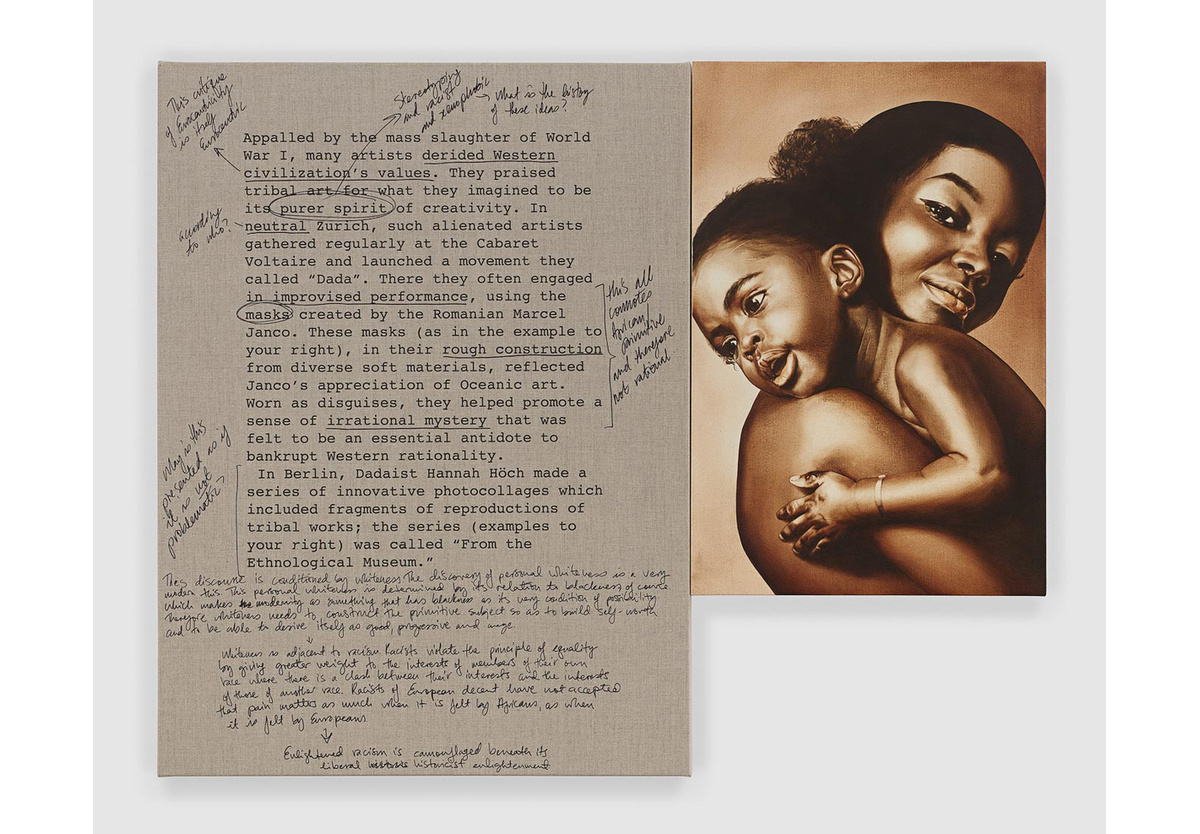 This critique
of Eurocentricity
is itself
Eurocentric
Stereotyping
and racist
and xenophobic
what is the history
of these ideas?
Appalled by the mass slaughter of World
War I, many artists derided Western
civilization's values. They praised
tribal art for what they imagined to be
its purer spirit of creativity. In
neutral Zurich, such alienated artists
gathered regularly at the Cabaret
Voltaire and launched a movement they
called “Dada”. There they often engaged
in improvised performance, using the
masks created by the Romanian Marcel
Janco. These masks (as in the example to
your right), in their rough construction
from diverse soft materials, reflected
Janco's appreciation of Oceanic art.
Worn as disguises, they helped promote a
sense of irrational mystery that was
felt to be an essential antidote to
bankrupt Western rationality.
In Berlin, Dadaist Hannah Höch made a
series of innovative photocollages which
included fragments of reproductions of
tribal works; the series (examples to
your right) was called “From the
Ethnological Museum.”
according
to who?
this all
connotes
African,
primitive
and therefore
not rational.
Why is this
presented as if
it is not
problematic?
This discourse is conditioned by whiteness. The discovery of personal whiteness is a very
modern this. This personal whiteness is determined by its relation to blackness of course
which makes modernity as something that has blackness as its very condition of possibility
therefore whiteness needs to construct the primitive subject so as to build self-worth
and to be able to desire itself as good, progressive and
Whiteness is adjacent to racism. Racists violate the principle of equality
by giving greater weight to the interests of members of their own
race where there is a clash between their interests and the interests
of those of another race. Racists of European decent have not accepted
that pain matters as much when it is felt by Africans, as when
it is felt by Europeans
Enlightened racism is camouflaged beneath its
liberal historicist enlightenment